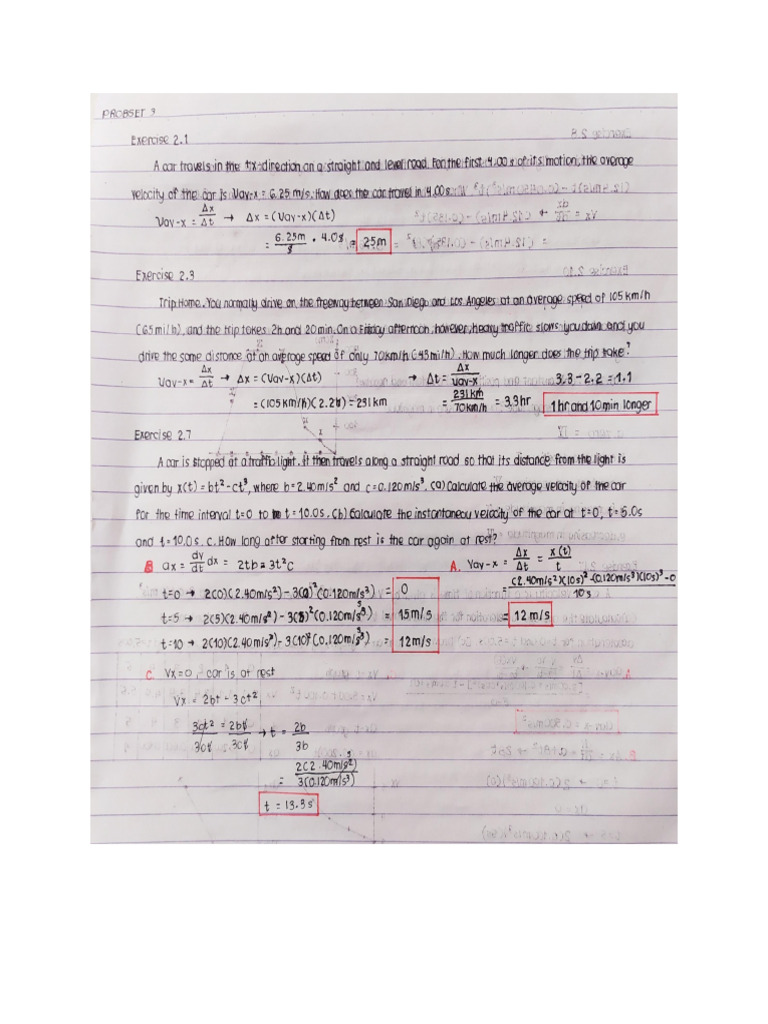 PROBSET 3
Exercise 2.1
A car travels in the +x-direction on a straight and level road. For the first 4.00 s of its motion, the average
velocity of the car is Vav-x = 6.25 m/s. How does the car travel in 4.00s.
Vav-x = Δx/Δt → Δx = (Vav-x)(Δt)
= 6.25m/s • 4.0s = 25m
Exercise 2.3
Trip Home. You normally drive on the freeway between San Diego and Los Angeles at an average speed of 105 km/h
(65 mi/h), and the trip takes 2h and 20 min. On a Friday afternoon, however, heavy traffic slows you down and you
drive the same distance at an average speed of only 70km/h (43 mi/h). How much longer does the trip take?
Vav-x = Δx/Δt → Δx = (Vav-x)(Δt) → Δt = Δx/Vav-x 3.3 - 2.2 = 1.1
= (105 km/h)(2.2h) = 231 km = 231 km/70km/h = 3.3hr 1 hr and 10 min longer
Exercise 2.7
A car is stopped at a traffic light. It then travels along a straight road so that its distance from the light is
given by x(t) = bt² - ct³, where b = 2.40 m/s² and c = 0.120 m/s³. (a) Calculate the average velocity of the car
for the time interval t=0 to t = 10.0s. (b) Calculate the instantaneou velocity of the car at t=0, t=5.0s
and t = 10.0s. c. How long after starting from rest is the car again at rest?
B ax = dv/dt dx = 2tb = 3t²c
A. Vav-x = Δx/Δt = x(t)/t
t=0 → 2(0)(2.40m/s²) - 3(0)²(0.120m/s³) = 0
= (2.40m/s²)(10s)² - (0.120m/s³)(10s)³ - 0/10s
t=5 → 2(5)(2.40m/s²) - 3(5)²(0.120m/s³) = 15m/s
= 12 m/s
t=10 → 2(10)(2.40m/s²) - 3(10)²(0.120m/s³) = 12m/s
C. Vx = 0, car is at rest
Vx = 2bt - 3ct²
3ct²/3ct = 2bt/3ct → t = 2b/3b
= 2(2.40m/s²)/3(0.120m/s³)
t = 13.3s